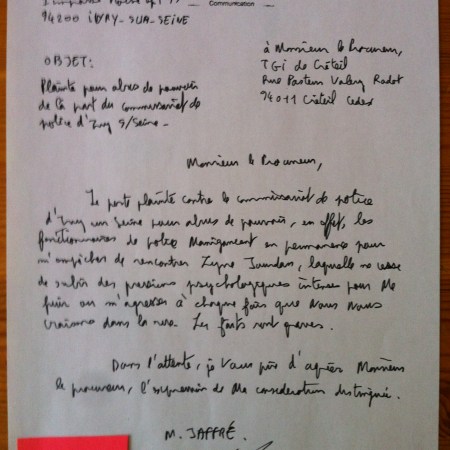 94200 IVRY-SUR-SEINE
Communication
OBJET:
Plainte pour abus de pouvoir
de la part du commissariat de
police d'Ivry s/Seine.
à Monsieur le Procureur,
TGI de Créteil
Rue Pasteur Valery Radot
94011 Créteil Cedex
Monsieur le Procureur,
Je porte plainte contre le commissariat de police
d'Ivry sur Seine pour abus de pouvoir, en effet, les
fonctionnaires de police en permanence pour
m'empêcher de rencontrer laquelle ne cesse
de subir des pressions psychologiques intenses pour me
fuir ou m'agresser à chaque fois que nous nous
croisons dans la rue. Les faits sont graves.
Dans l'attente, je vous prie d'agréer Monsieur
le procureur, l'expression de ma considération distinguée.
M. JAFFRÉ.